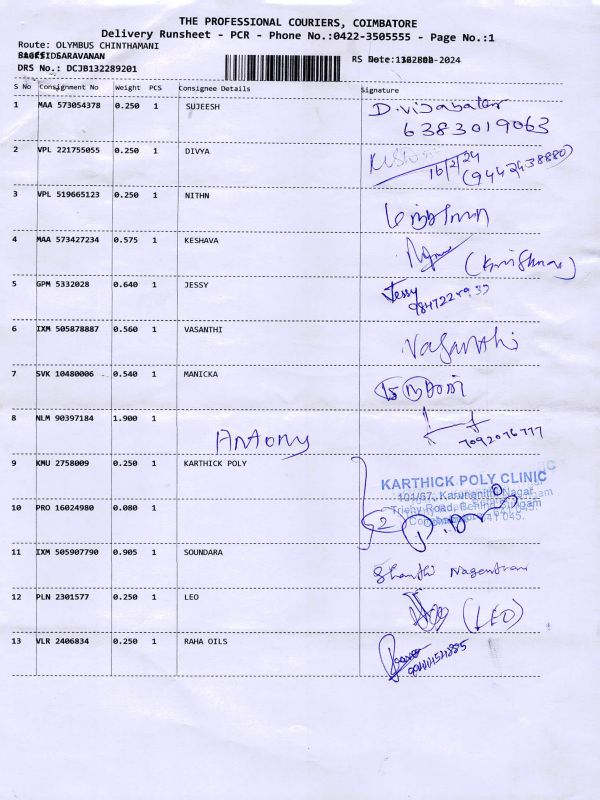 THE PROFESSIONAL COURIERS, COIMBATORE
Delivery Runsheet - PCR - Phone No.:0422-3505555 - Page No.:1
Route: OLYMBUS CHINTHAMANI
SARAVANAN
DRS No.: DCJB132289201
RS Date: -2024
S No Consignment No Weight PCS Consignee Details Signature
1 MAA 573054378 0.250 1 SUJEESH
6383019063
2 VPL 221755055 0.250 1 DIVYA
16/2/24
(9442438880)
3 VPL 519665123 0.250 1 NITHN
4 MAA 573427234 0.575 1 KESHAVA
5 GPM 5332028 0.640 1 JESSY Jessy
6 IXM 505878887 0.560 1 VASANTHI Vasanthi
7 SVK 10480006 0.540 1 MANICKA
8 NLM 90397184 1.900 1 Antony
7092076777
9 KMU 2758009 0.250 1 KARTHICK POLY
KARTHICK POLY CLINIC
101/67, Karunanithi Nagar
10 PRO 16024980 0.080 1
11 IXM 505907790 0.905 1 SOUNDARA
12 PLN 2301577 0.250 1 LEO (LEO)
13 VLR 2406834 0.250 1 RAHA OILS